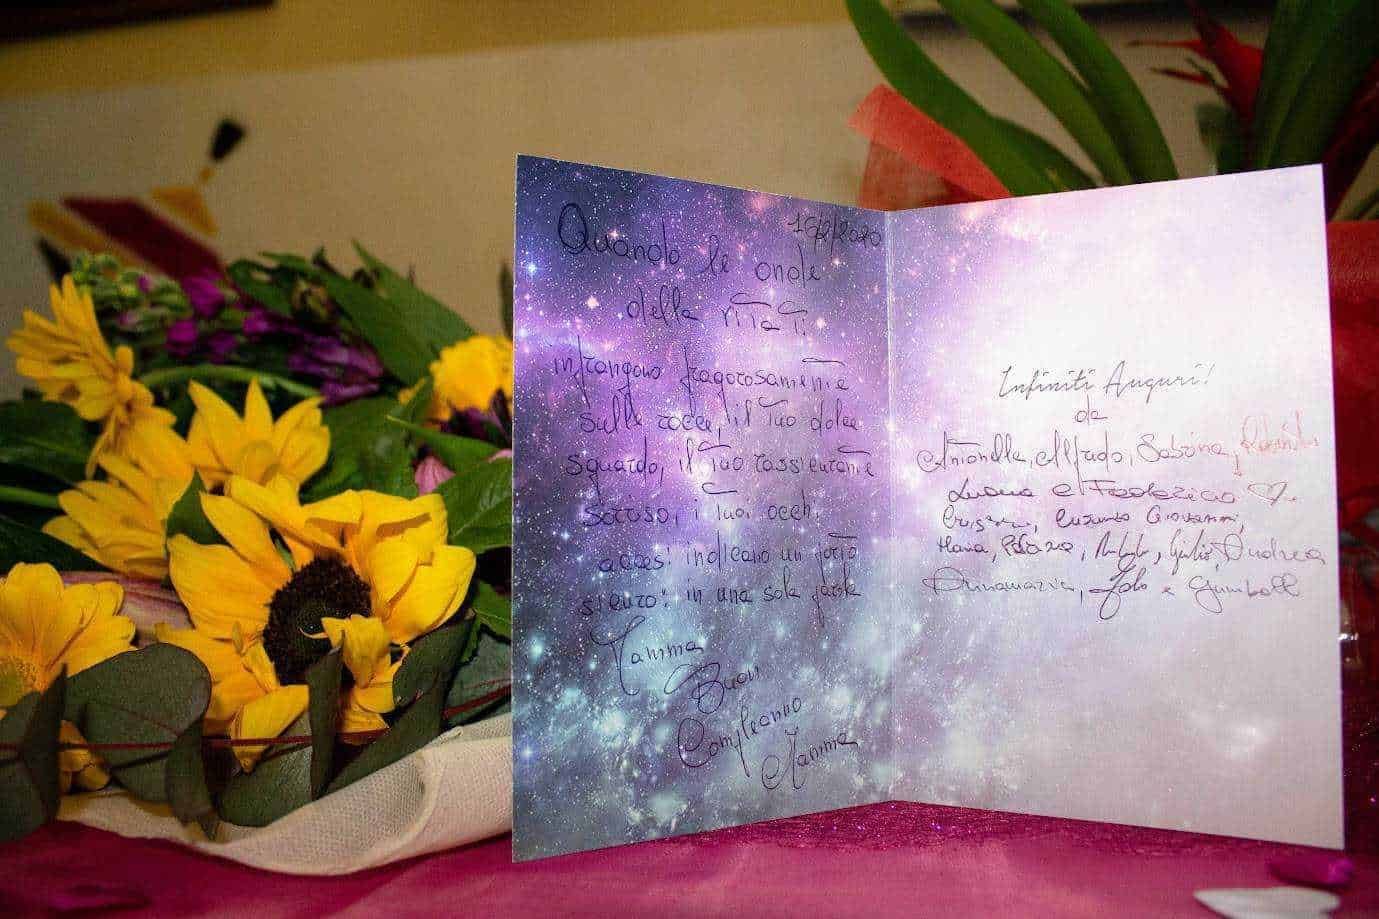 16/2/2020
Quando le onde
della vita ti
infrangono fragorosamente
sulle rocce, il tuo dolce
sguardo, il tuo rassicurante
sorriso, i tuoi occhi
accesi indicano un porto
sicuro: in una sola parola
Mamma
Buon
Compleanno
Mamma
Infiniti Auguri!
da
Antonella, Alfredo, Sabrina,
Luana e Federica
Giovanni,
Maria, Giulio, Andrea
Annamaria, e Gumball